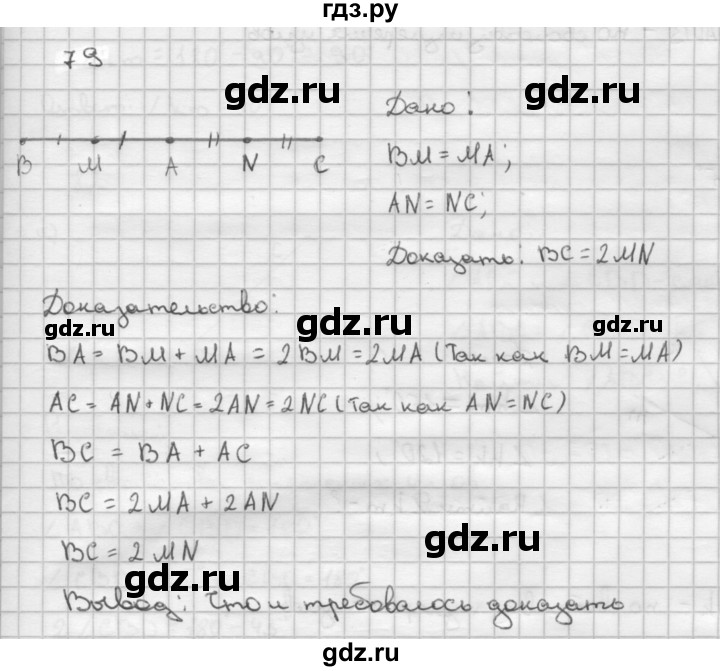 гдз.ру
79
gdz.ru
Дано:
B M A N C
BM = MA;
AN = NC;
gdz.ru
gdz.ru
Доказать: BC = 2MN
Доказательство:
gdz.ru
gdz.ru
gdz.ru
BA = BM + MA = 2BM = 2MA (Так как BM = MA)
AC = AN + NC = 2AN = 2NC (Так как AN = NC)
BC = BA + AC
BC = 2MA + 2AN
gdz.ru
BC = 2MN
gdz.ru
Вывод: Что и требовалось доказать
gdz.ru